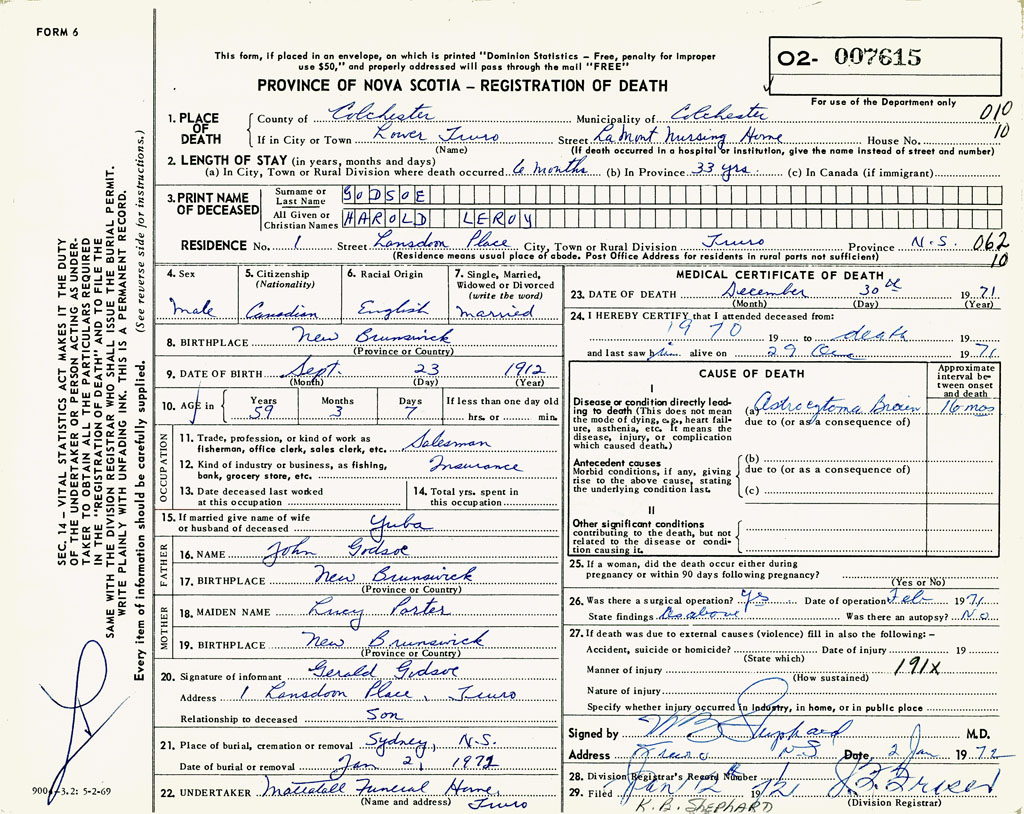 FORM 6
This form, if placed in an envelope, on which is printed "Dominion Statistics – Free, penalty for improper
use $50," and properly addressed will pass through the mail "FREE"
02- 007615
PROVINCE OF NOVA SCOTIA – REGISTRATION OF DEATH
For use of the Department only
1. PLACE OF DEATH County of Colchester Municipality of Colchester 010
If in City or Town Lower Truro Street LaMont Nursing Home House No. 10
(Name) (If death occurred in a hospital or institution, give the name instead of street and number)
2. LENGTH OF STAY (in years, months and days)
(a) In City, Town or Rural Division where death occurred 6 months (b) In Province 33 yrs. (c) In Canada (if immigrant)
3. PRINT NAME OF DECEASED Surname or Last Name GODSOE
All Given or Christian Names HAROLD LEROY
RESIDENCE No. 1 Street Lansdoon Place City, Town or Rural Division Truro Province N.S. 062
(Residence means usual place of abode. Post Office Address for residents in rural parts not sufficient) 10
4. Sex
Male
5. Citizenship
(Nationality)
Canadian
6. Racial Origin
English
7. Single, Married,
Widowed or Divorced
(write the word)
married
8. BIRTHPLACE New Brunswick
(Province or Country)
9. DATE OF BIRTH Sept. 23 1912
(Month) (Day) (Year)
10. AGE in Years Months Days If less than one day old
59 3 7 hrs. or min.
OCCUPATION
11. Trade, profession, or kind of work as
fisherman, office clerk, sales clerk, etc. Salesman
12. Kind of industry or business, as fishing,
bank, grocery store, etc. Insurance
13. Date deceased last worked
at this occupation
14. Total yrs. spent in
this occupation
15. If married give name of wife
or husband of deceased Yuba
FATHER
16. NAME John Godsoe
17. BIRTHPLACE New Brunswick
(Province or Country)
MOTHER
18. MAIDEN NAME Lucy Porter
19. BIRTHPLACE New Brunswick
(Province or Country)
20. Signature of informant Gerald Godsoe
Address 1 Lansdoon Place, Truro
Relationship to deceased Son
21. Place of burial, cremation or removal Sydney, N.S.
Date of burial or removal Jan 2, 1972
22. UNDERTAKER Mattatall Funeral Home,
(Name and address) Truro
MEDICAL CERTIFICATE OF DEATH
23. DATE OF DEATH December 30th 1971
(Month) (Day) (Year)
24. I HEREBY CERTIFY that I attended deceased from:
1970 19 to death 19
and last saw him alive on 29 Dec 1971
CAUSE OF DEATH
Approximate
interval be-
tween onset
and death
I
Disease or condition directly lead-
ing to death (This does not mean
the mode of dying, e.g., heart fail-
ure, asthenia, etc. It means the
disease, injury, or complication
which caused death.)
(a) Astrocytoma Brain 16 mos
due to (or as a consequence of)
Antecedent causes
Morbid conditions, if any, giving
rise to the above cause, stating
the underlying condition last.
(b)
due to (or as a consequence of)
(c)
II
Other significant conditions
contributing to the death, but not
related to the disease or condi-
tion causing it.
25. If a woman, did the death occur either during
pregnancy or within 90 days following pregnancy?
(Yes or No)
26. Was there a surgical operation? Yes Date of operation Feb 1971
State findings As above Was there an autopsy? No
27. If death was due to external causes (violence) fill in also the following: –
Accident, suicide or homicide? Date of injury 19
(State which)
Manner of injury 191X
(How sustained)
Nature of injury
Specify whether injury occurred in industry, in home, or in public place
Signed by W B Shephard M.D.
Address Truro NS Date, 2 Jan 1972
28. Division Registrar's Record Number 1
29. Filed Jan 12 1972
(Division Registrar)
K. B. SHEPHARD
SEC. 14 – VITAL STATISTICS ACT MAKES IT THE DUTY
OF THE UNDERTAKER OR PERSON ACTING AS UNDER-
TAKER TO OBTAIN ALL THE PARTICULARS REQUIRED
IN THE "REGISTRATION OF DEATH" AND TO FILE THE
SAME WITH THE DIVISION REGISTRAR WHO SHALL ISSUE THE BURIAL PERMIT.
WRITE PLAINLY WITH UNFADING INK. THIS IS A PERMANENT RECORD.
Every item of information should be carefully supplied. (See reverse side for instructions.)